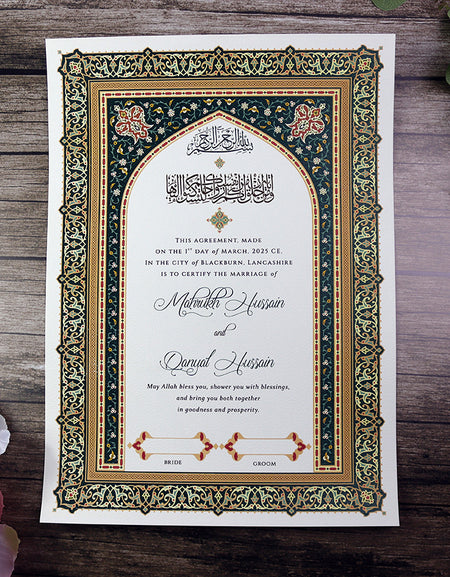 بسم الله الرحمن الرحيم
This agreement, made
on the 1st day of March, 2025 CE.
In the city of Blackburn, Lancashire
is to certify the marriage of
Mahrukh Hussain
and
Qanual Hussain
May Allah bless you, shower you with blessings,
and bring you both together
in goodness and prosperity.
BRIDE GROOM